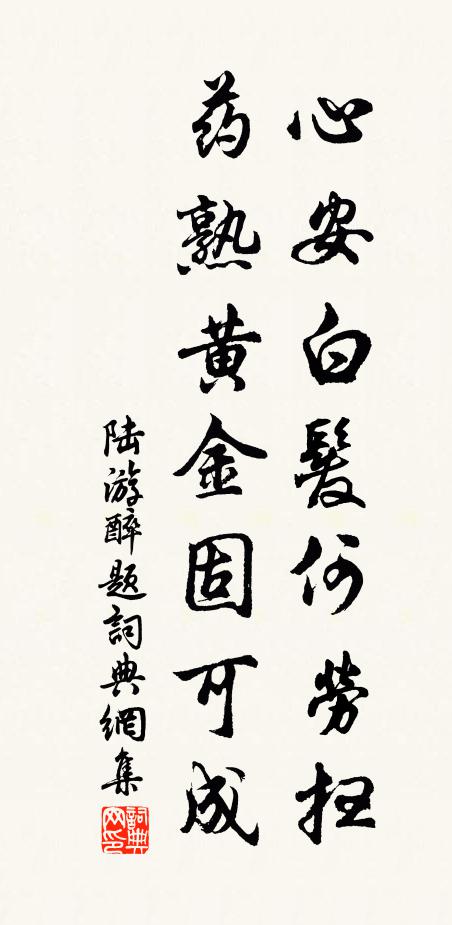 心安白髮何勞拒
药熟黄金固可成
陆游醉题詞典網集
詞典
网印